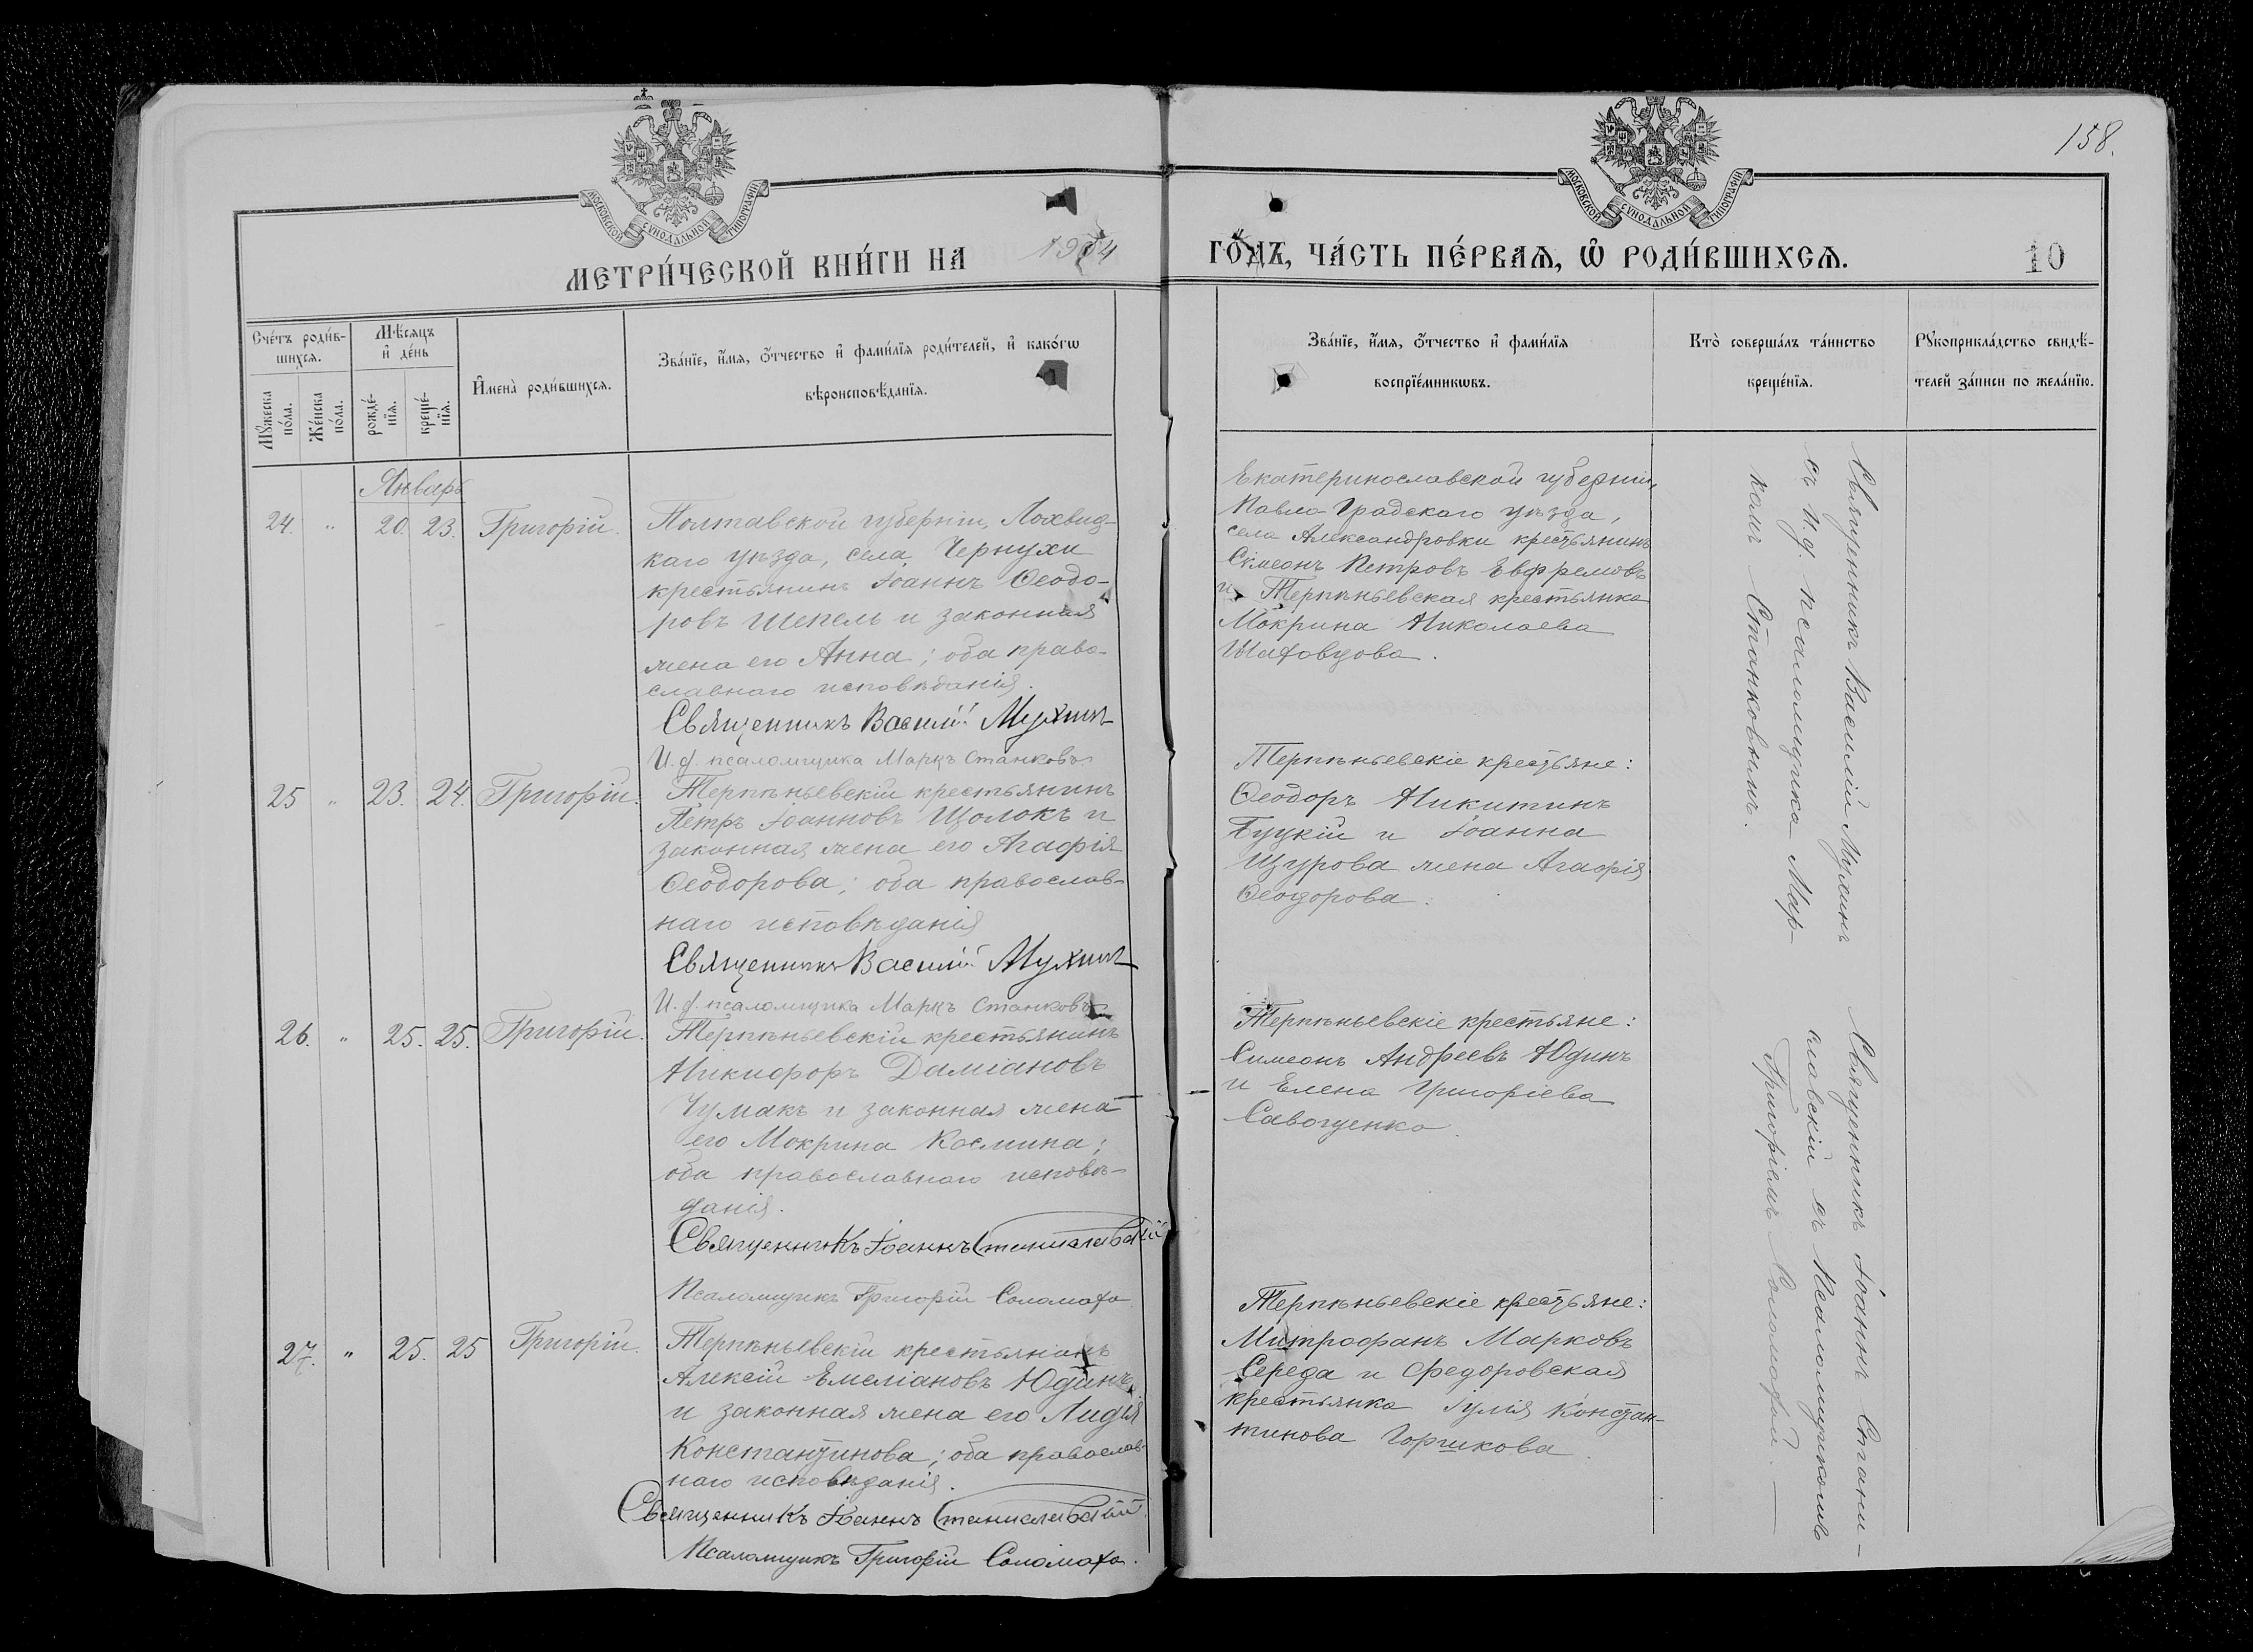 158.
МОСКОВСКОЙ СѴНОДАЛЬНОЙ ТИПОГРАФІИ
МОСКОВСКОЙ СѴНОДАЛЬНОЙ ТИПОГРАФІИ
МЕТРИ́ЧЕСКОЙ КНИ́ГИ НА 1904 ГО́ДЪ, ЧА́СТЬ ПЕ́РВАѦ, Ѡ РОДИ́ВШИХСѦ. 10
Сче́тъ роди́в-
шихсѧ.
Мꙋ́жеска по́ла.
Же́нска по́ла.
Мѣ́сѧцъ
и҆ де́нь
рожде́-
нїѧ.
креще́-
нїѧ.
И҆мена̀ роди́вшихсѧ.
Зва́нїе, и҆́мѧ, ѻ҆́тчество и҆ фами́лїѧ роди́телей, и҆ како́гѡ
вѣроисповѣ́данїѧ.
Зва́нїе, и҆́мѧ, ѻ҆́тчество и҆ фами́лїѧ
воспрїе́мникѡвъ.
Кто̀ соверша́лъ та́инство
креще́нїѧ.
Рꙋкоприкла́дство свидѣ́-
телей за́писи по жела́нїю.
Январь
24. " 20. 23. Григорій.
Полтавской губерніи, Лохвиц-
каго уѣзда, села Чернухи
крестьянинъ Іоаннъ Ѳеодо-
ровъ Шепель и законная
жена его Анна; оба право-
славнаго исповѣданія.
Священникъ Василій Мухинъ
И. д. псаломщика Маркъ Станковъ
Екатеринославской губерніи,
Павло-Градскаго уѣзда,
села Александровки крестьянинъ
Симеонъ Петровъ Евфремовъ
и Терпѣньевская крестьянка
Мокрина Николаева
Шаховцова.
Священникъ Василій Мухинъ
съ и. д. псаломщика Мар-
комъ Станковымъ.
25 " 23. 24. Григорій.
Терпѣньевскій крестьянинъ
Петръ Іоанновъ Щолокъ и
законная жена его Агафія
Ѳеодорова; оба православ-
наго исповѣданія
Священникъ Василій Мухинъ
И. д. псаломщика Маркъ Станковъ
Терпѣньевскіе крестьяне:
Ѳеодоръ Никитинъ
Буцкій и Іоанна
Щурова жена Агафія
Ѳеодорова.
26. " 25. 25. Григорій.
Терпѣньевскій крестьянинъ
Никифоръ Даміановъ
Чумакъ и законная жена
его Мокрина Космина;
оба православнаго исповѣ-
данія.
Священникъ Іоаннъ Станиславскій
Псаломщикъ Григорій Соломаха
Терпѣньевскіе крестьяне:
Симеонъ Андреевъ Юдинъ
и Елена Григоріева
Савощенко.
Священникъ Іоаннъ Стани-
славскій съ Псаломщикомъ
Григоріемъ Соломахой. —
27. " 25. 25 Григорій.
Терпѣньевскій крестьянинъ
Алексій Емеліановъ Юдинъ
и законная жена его Лидія
Константинова; оба православ-
наго исповѣданія.
Священникъ Іоаннъ Станиславскій
Псаломщикъ Григорій Соломаха.
Терпѣньевскіе крестьяне:
Митрофанъ Марковъ
Середа и Федоровская
крестьянка Іулія Констан-
тинова Горшкова